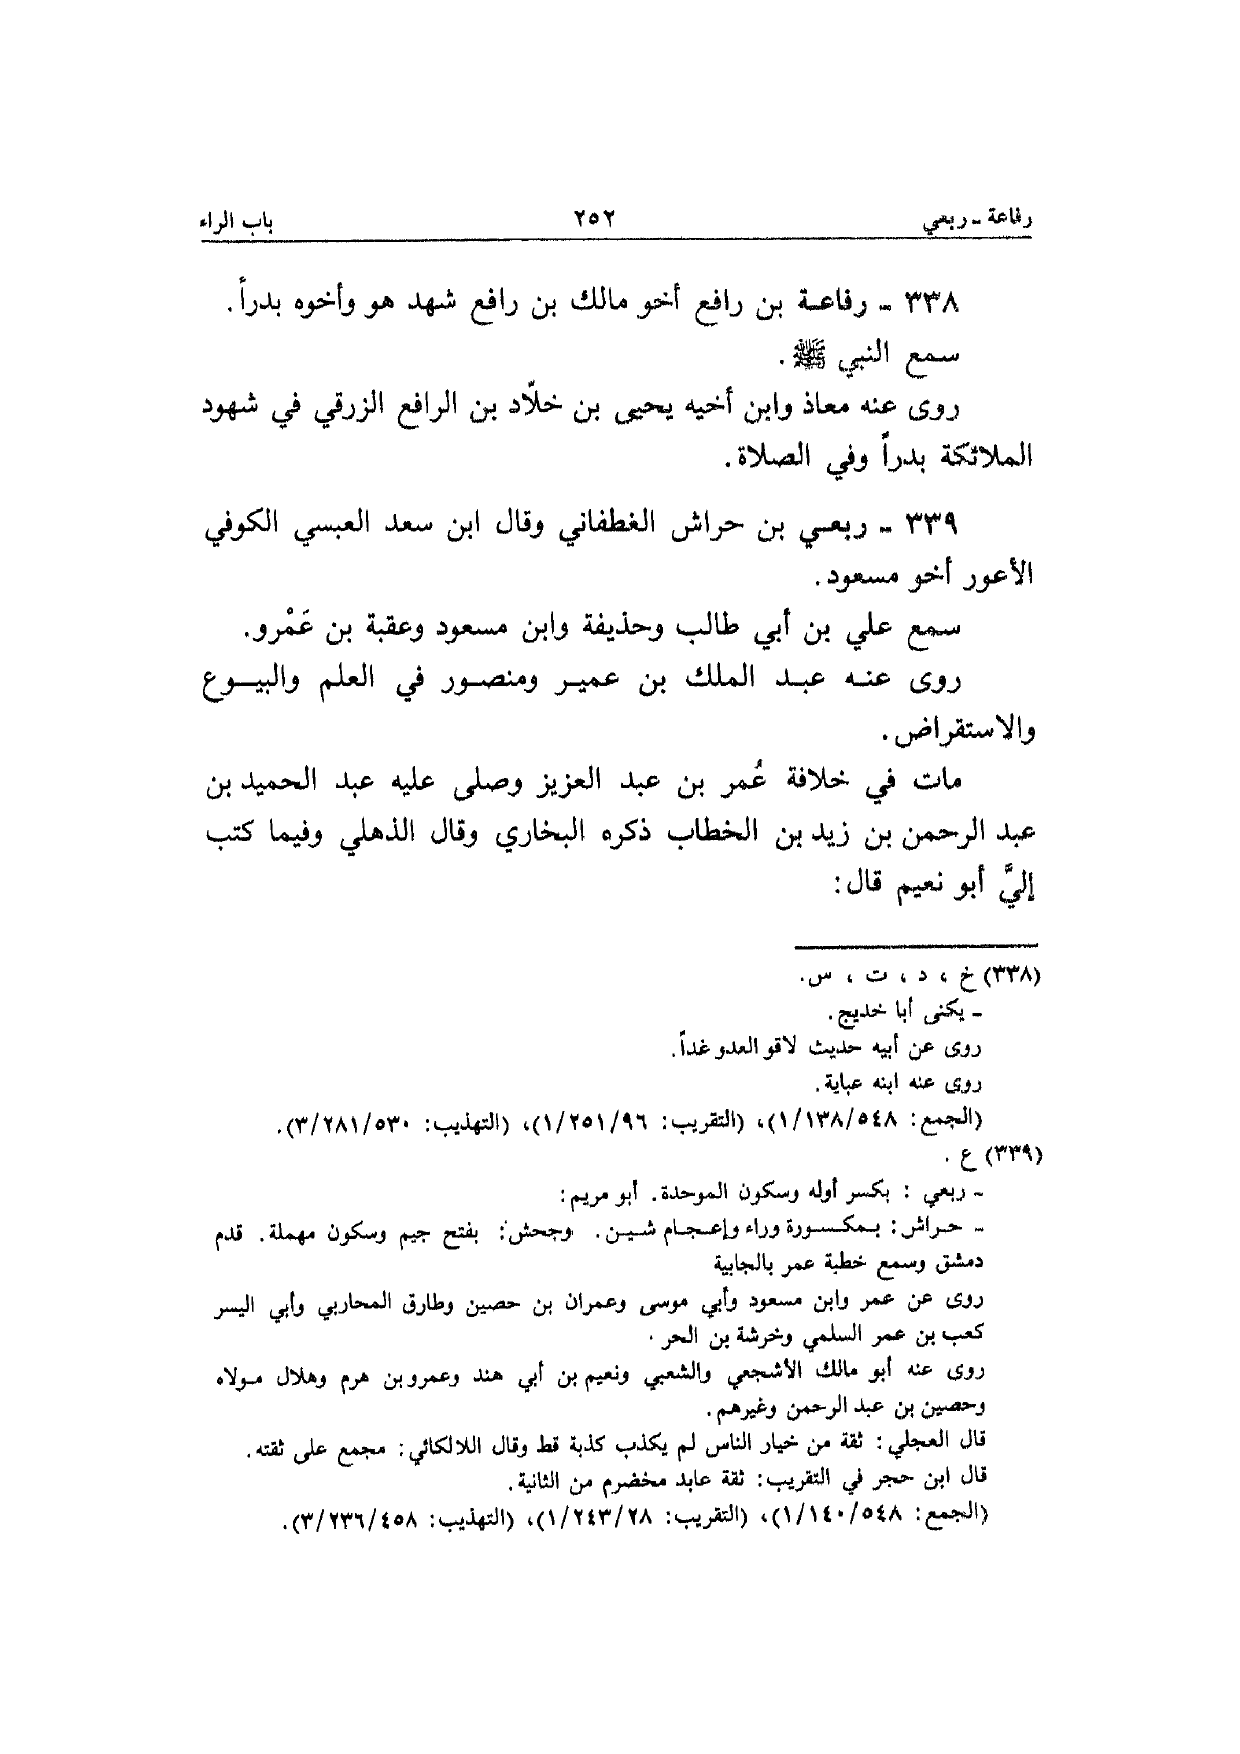 رفاعة ـ ربعي ٢٥٢ باب الراء
٣٣٨ ـ رفاعة بن رافع أخو مالك بن رافع شهد هو وأخوه بدراً.
سمع النبي ﷺ.
روى عنه معاذ وابن أخيه يحيى بن خلّاد بن الرافع الزرقي في شهود
الملائكة بدراً وفي الصلاة.
٣٣٩ ـ ربعي بن حراش الغطفاني وقال ابن سعد العبسي الكوفي
الأعور أخو مسعود.
سمع علي بن أبي طالب وحذيفة وابن مسعود وعقبة بن عَمْرو.
روى عنه عبد الملك بن عمير ومنصور في العلم والبيوع
والاستقراض.
مات في خلافة عُمر بن عبد العزيز وصلى عليه عبد الحميد بن
عبد الرحمن بن زيد بن الخطاب ذكره البخاري وقال الذهلي وفيما كتب
إليَّ أبو نعيم قال:
(٣٣٨) خ ، د ، ت ، س.
ـ يكنى أبا خديج.
روى عن أبيه حديث لاقو العدو غداً.
روى عنه ابنه عباية.
(الجمع: ١/١٣٨/٥٤٨)، (التقريب: ١/٢٥١/٩٦)، (التهذيب: ٣/٢٨١/٥٣٠).
(٣٣٩) ع .
ـ ربعي : بكسر أوله وسكون الموحدة. أبو مريم:
ـ حراش: بمكسورة وراء وإعجام شين. وجحش: بفتح جيم وسكون مهملة. قدم
دمشق وسمع خطبة عمر بالجابية
روى عن عمر وابن مسعود وأبي موسى وعمران بن حصين وطارق المحاربي وأبي اليسر
كعب بن عمر السلمي وخرشة بن الحر .
روى عنه أبو مالك الأشجعي والشعبي ونعيم بن أبي هند وعمرو بن هرم وهلال مولاه
وحصين بن عبد الرحمن وغيرهم.
قال العجلي: ثقة من خيار الناس لم يكذب كذبة قط وقال اللالكائي: مجمع على ثقته.
قال ابن حجر في التقريب: ثقة عابد مخضرم من الثانية.
(الجمع: ١/١٤٠/٥٤٨)، (التقريب: ١/٢٤٣/٢٨)، (التهذيب: ٣/٢٣٦/٤٥٨).